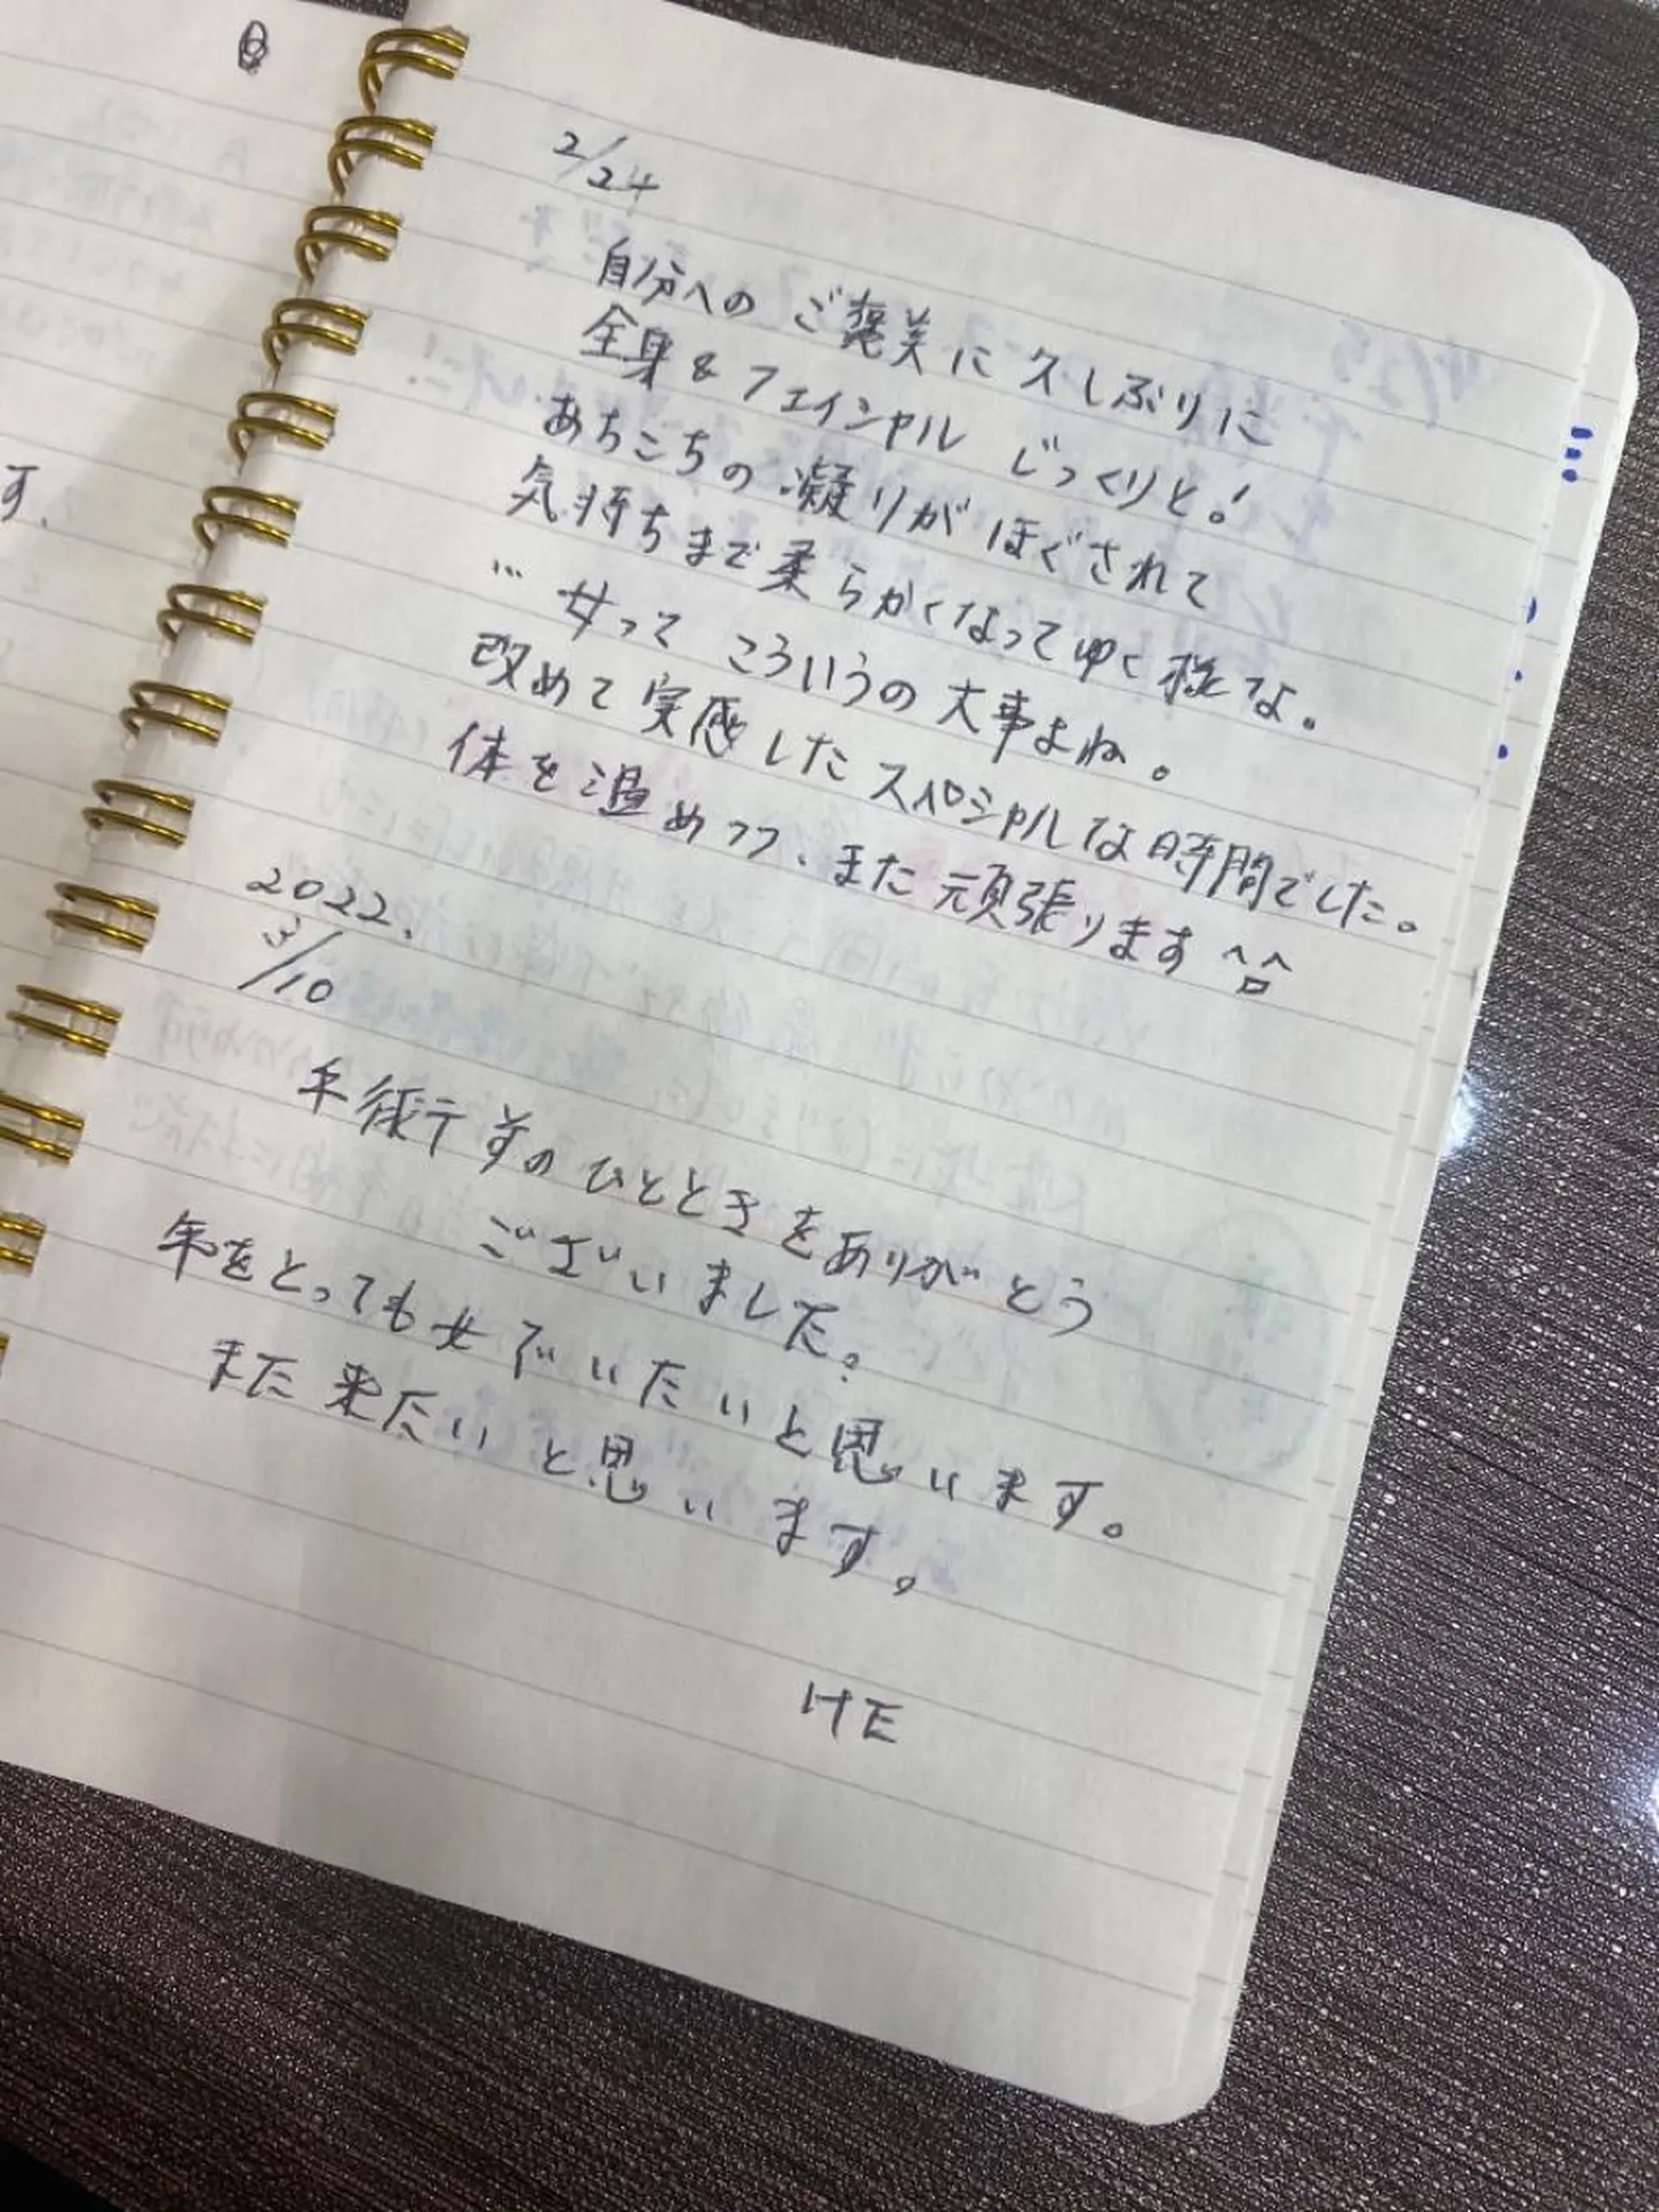 2/24
自分へのご褒美に久しぶりに
全身&フェイシャル じっくりと!
あちこちの凝りがほぐされて
気持ちまで柔らかくなってゆく様な。
… 女って こういうの大事よね。
改めて実感したスペシャルな時間でした。
体を温めつつ、また頑張ります ^ロ^
2022.
3/10
手術前のひとときをありがとう
ございました。
年をとっても女でいたいと思います。
また来たいと思います。
HE
す.